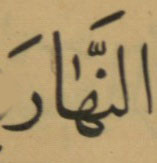 النَّهَارَ